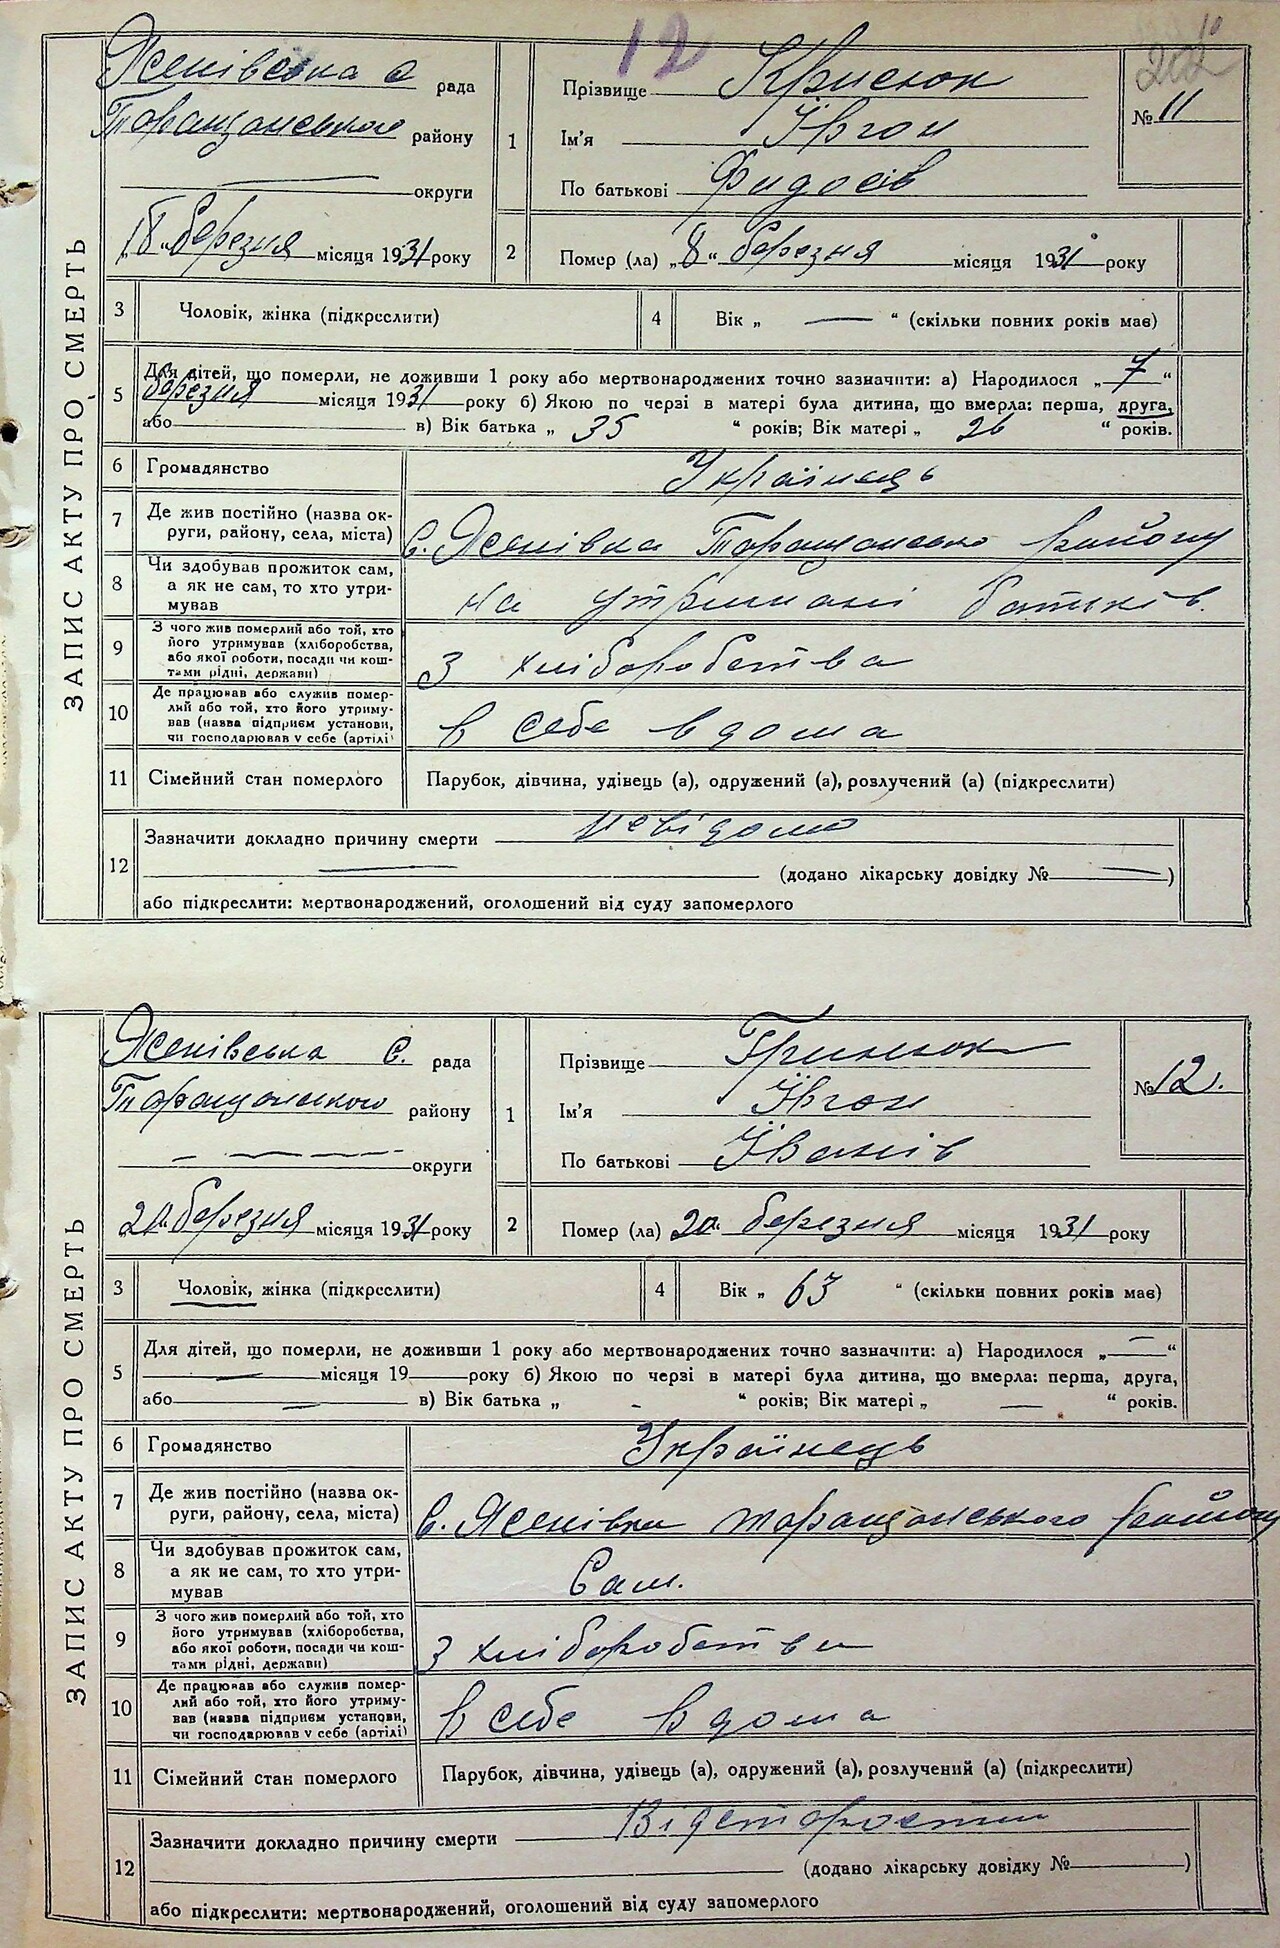 12
ЗАПИС АКТУ ПРО СМЕРТЬ
Ясенівська с рада
Таращанського району
округи
"8" березня місяця 1931 року
1
Прізвище
Ім'я
По батькові
№ 11
2 Помер (ла) „8“ березня місяця 1931 року
3 Чоловік, жінка (підкреслити)
4 Вік „ — “ (скільки повних років має)
5 Для дітей, що померли, не доживши 1 року або мертвонароджених точно зазначити: а) Народилося „7“
березня місяця 1931 року б) Якою по черзі в матері була дитина, що вмерла: перша, друга,
або в) Вік батька „ 35 “ років; Вік матері „ 26 “ років.
6 Громадянство Українець
7 Де жив постійно (назва ок-
руги, району, села, міста) с. Ясенівка Таращансько району
8 Чи здобував прожиток сам,
а як не сам, то хто утри-
мував на утримані батьків.
9 З чого жив померлий або той, хто
його утримував (хліборобства,
або якої роботи, посади чи кош-
тами рідні, держави) З хліборобства
10 Де працював або служив помер-
лий або той, хто його утриму-
вав (назва підприєм установи,
чи господарював у себе (артілі) в себе вдома
11 Сімейний стан померлого Парубок, дівчина, удівець (а), одружений (а), розлучений (а) (підкреслити)
12 Зазначити докладно причину смерти невідомо
(додано лікарську довідку № — )
або підкреслити: мертвонароджений, оголошений від суду запомерлого
ЗАПИС АКТУ ПРО СМЕРТЬ
Ясенівська с. рада
Таращанського району
округи
березня місяця 1931 року
1
Прізвище
Ім'я
По батькові Іванів
№ 12.
2 Помер (ла) березня місяця 1931 року
3 Чоловік, жінка (підкреслити)
4 Вік „ 63 “ (скільки повних років має)
5 Для дітей, що померли, не доживши 1 року або мертвонароджених точно зазначити: а) Народилося „—“
— місяця 19 року б) Якою по черзі в матері була дитина, що вмерла: перша, друга,
або — в) Вік батька „ - “ років; Вік матері „ — “ років.
6 Громадянство Українець
7 Де жив постійно (назва ок-
руги, району, села, міста) с. Ясенівка таращанського району
8 Чи здобував прожиток сам,
а як не сам, то хто утри-
мував Сам.
9 З чого жив померлий або той, хто
його утримував (хліборобства,
або якої роботи, посади чи кош-
тами рідні, держави) З хліборобства
10 Де працював або служив помер-
лий або той, хто його утриму-
вав (назва підприєм установи,
чи господарював у себе (артілі) в себе вдома
11 Сімейний стан померлого Парубок, дівчина, удівець (а), одружений (а), розлучений (а) (підкреслити)
12 Зазначити докладно причину смерти Відстарости
(додано лікарську довідку № )
або підкреслити: мертвонароджений, оголошений від суду запомерлого